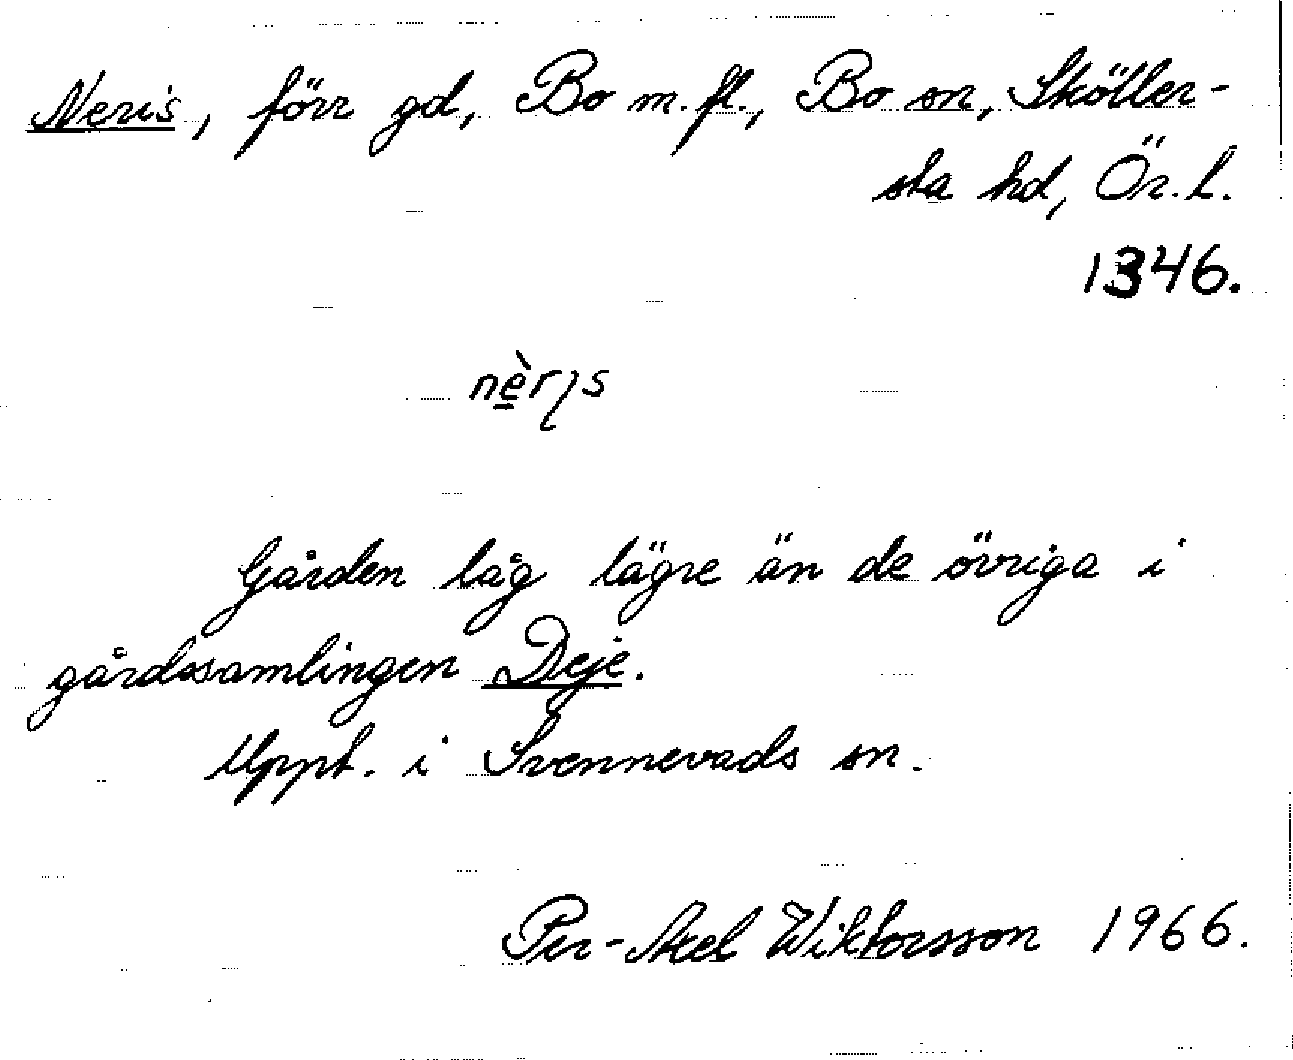 Neris, förr gd, Bo m.fl., Bo sn, Sköller-
sta hd, Ör.l.
1346.
Gården låg lägre än de övriga i
gårdssamlingen Deje.
Uppt. i Svennevads sn.
Per-Axel Wiktorsson 1966.